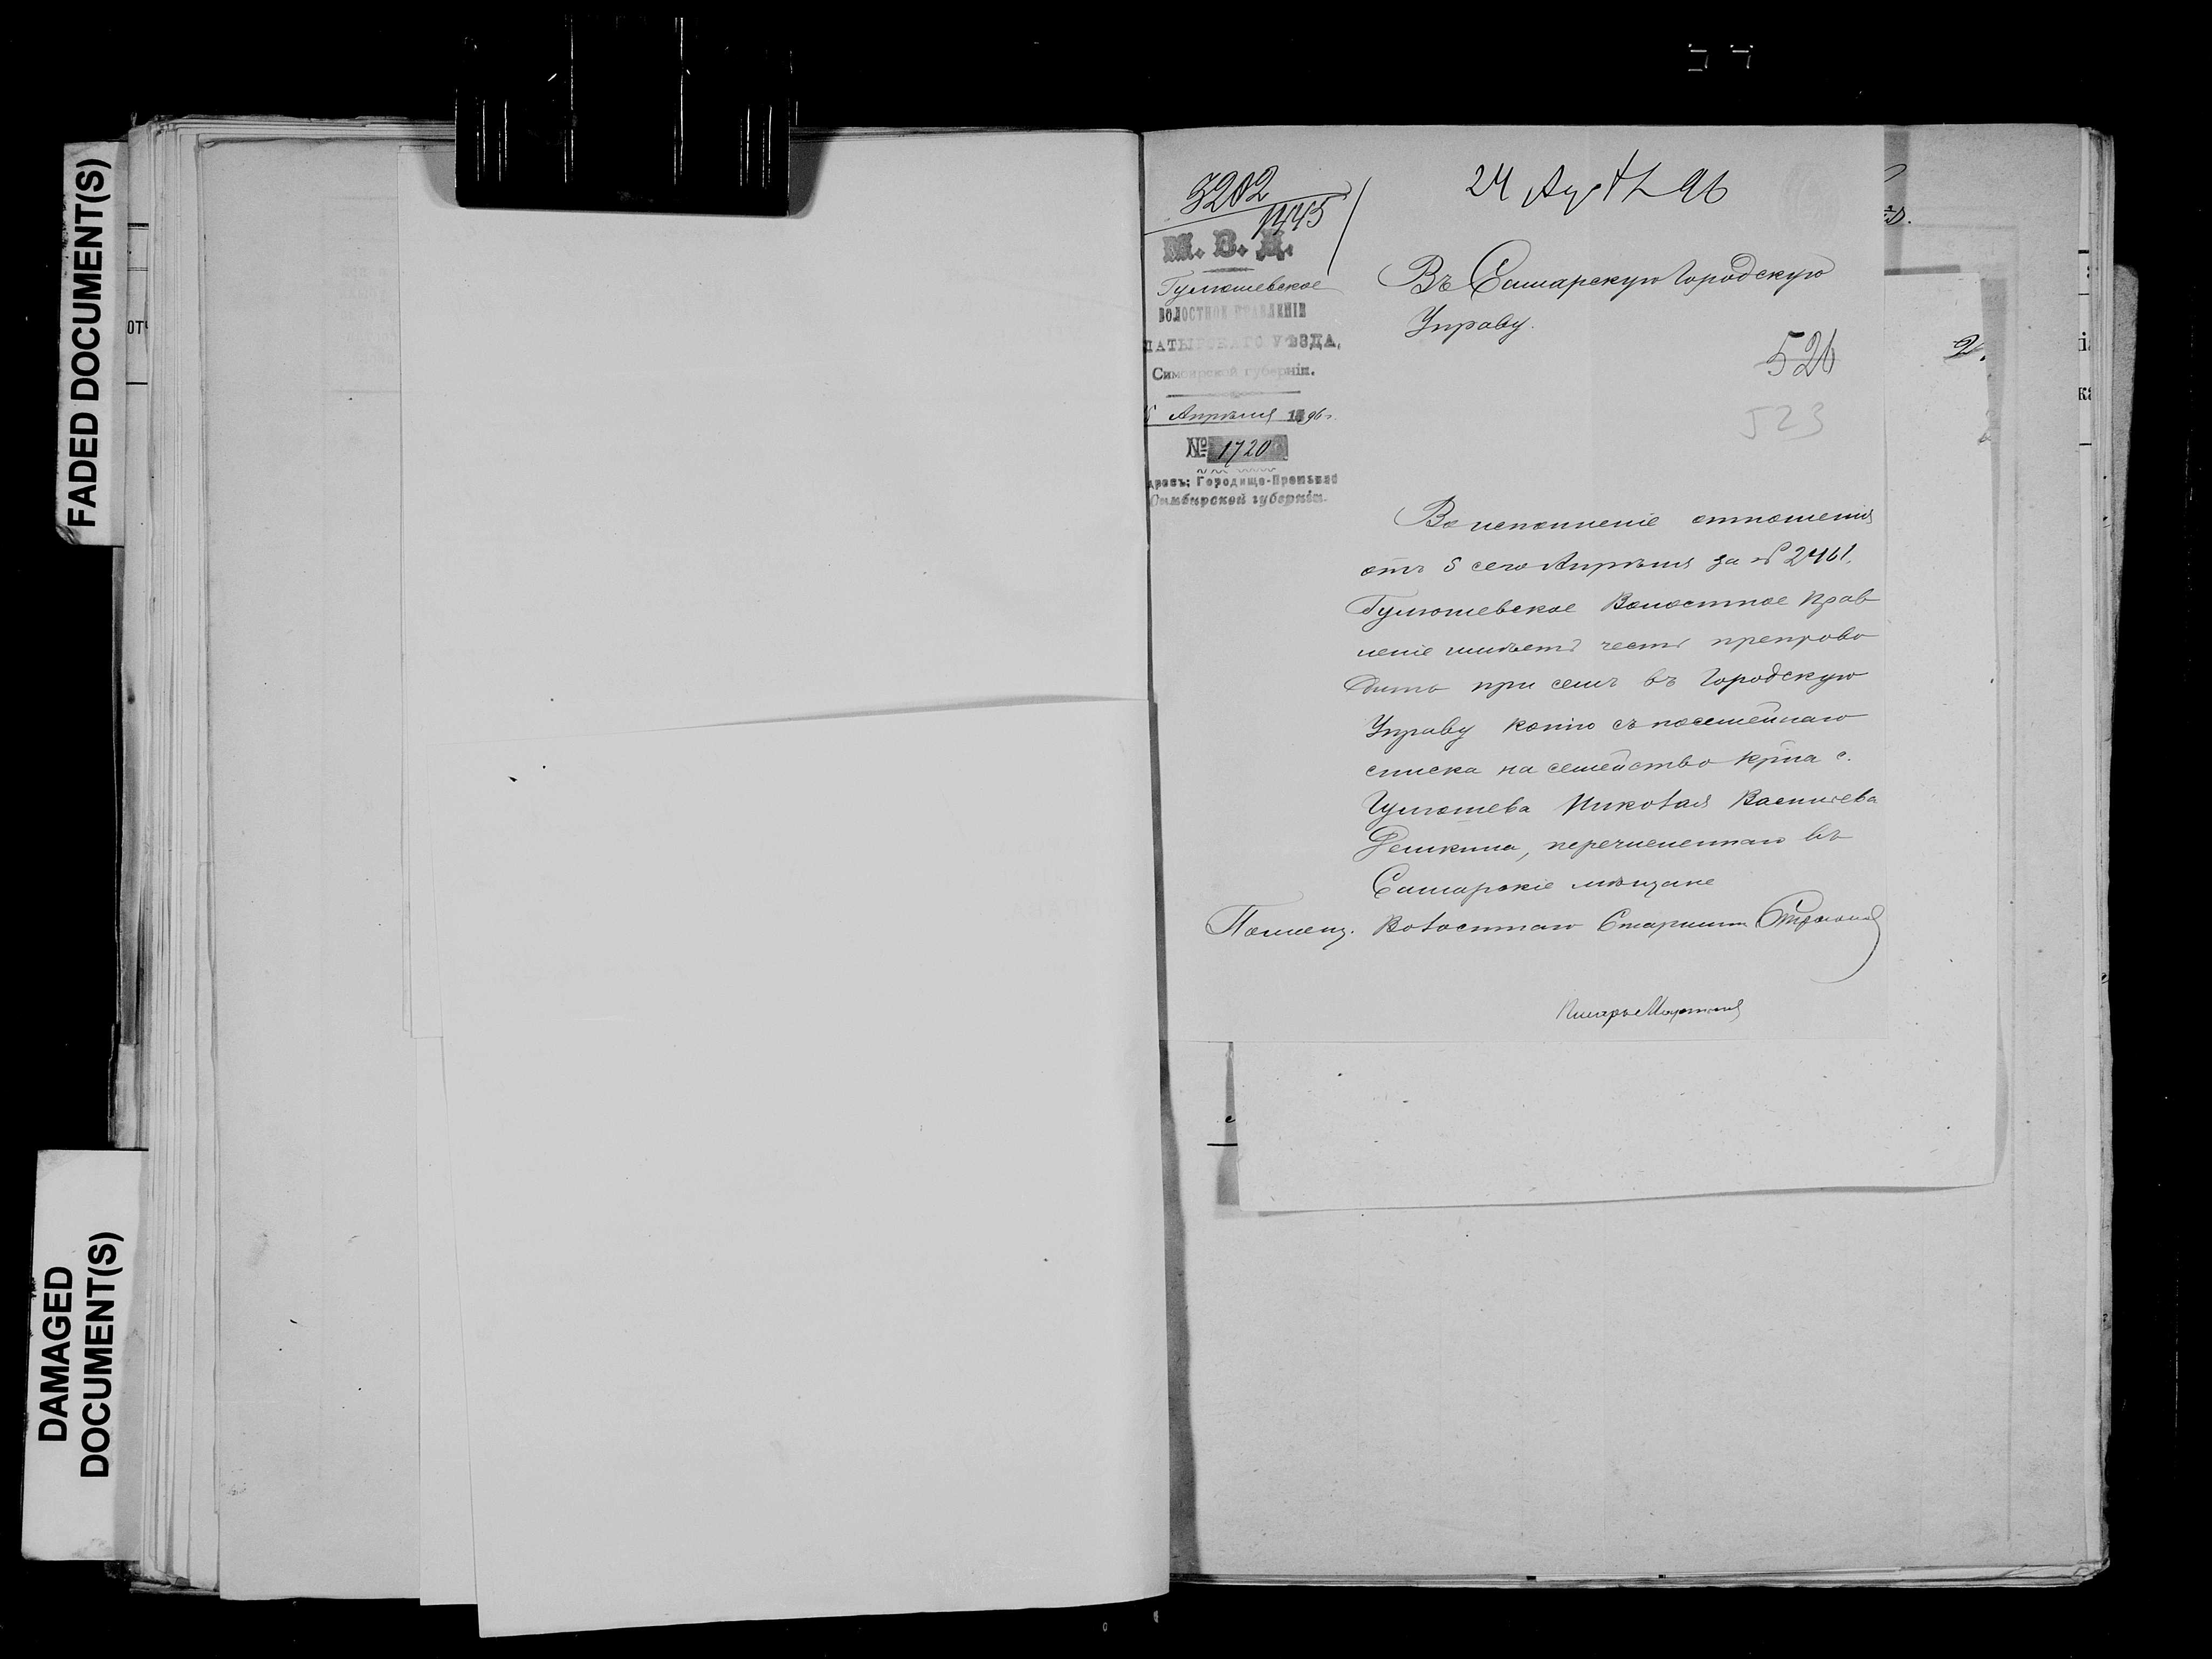 FADED DOCUMENT(S)
DAMAGED
DOCUMENT(S)
3202
1445
24 96
М. В. Д.
Гулюшевское
ВОЛОСТНОЕ ПРАВЛЕНІЕ
ЛАТЫРСКАГО УѢЗДА,
Симбирской губерніи.
Апрѣля 1896 г.
№ 1720
дресъ: Городище-
Симбирской губерніи.
Въ Самарскую Городскую
Управу.
526
523
Во исполненіе отношенія
отъ 5 сего Апрѣля за № 2461.
Гулюшевское Волостное Прав
леніе имѣетъ честь препрово
дить при семъ въ Городскую
Управу копію съ посемейнаго
списка на семейство кр-на с.
Гулюшева Николая Васильева
перечисленнаго въ
Самарскіе мѣщане
Помощ. Волостнаго Старшины
Писарь